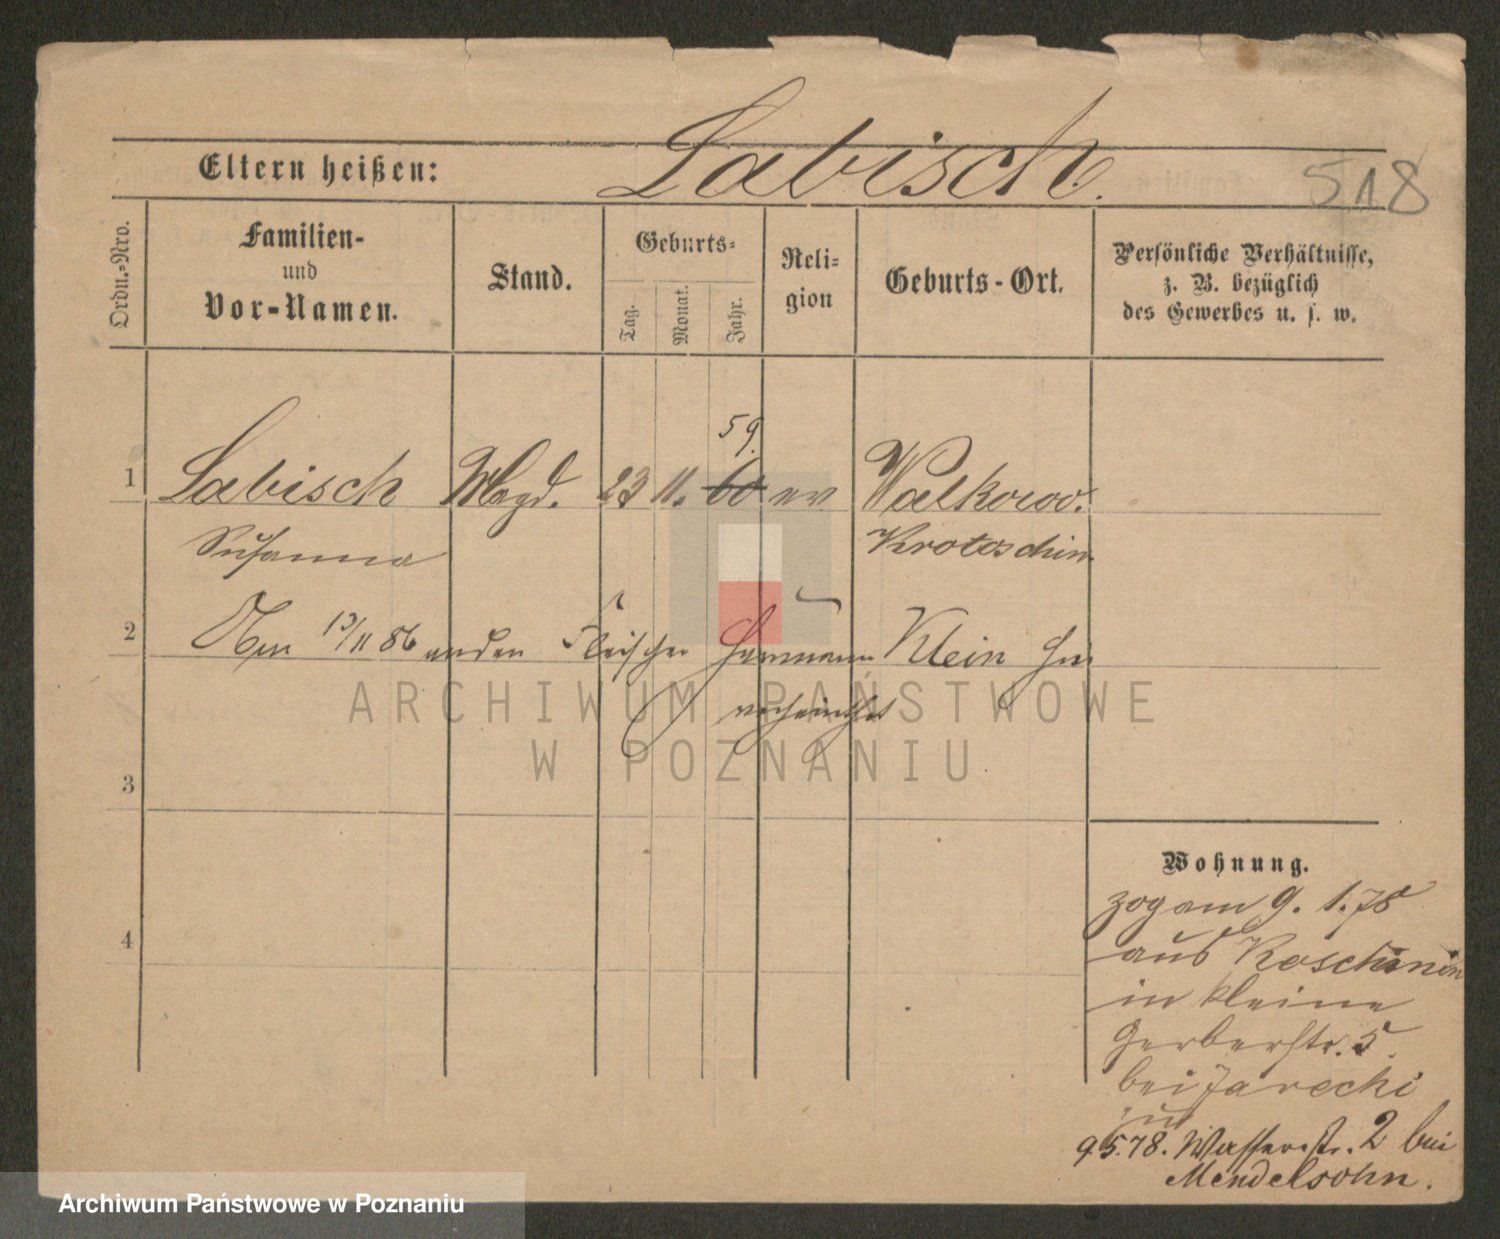 Eltern heißen: Labisch.
518
Ordn.-Nro.
Familien-
und
Vor-Namen.
Stand.
Geburts-
Tag.
Monat.
Jahr.
Reli-
gion
Geburts-Ort.
Persönliche Verhältnisse,
z. B. bezüglich
des Gewerbes u. s. w.
59.
1 Labisch Magd. 23 11. 60 ev Walkowo.
Susanna Krotoschin
2 Am 13/11 86 an den Fleischer Hermann Klein hier
verheirathet
ARCHIWUM PAŃSTWOWE
W POZNANIU
3
Wohnung.
zog am 9. 1. 78
aus Koschmin
4
in kleine
Gerberstr. 5.
bei Jarecki
zu
9.5.78. Wasserstr. 2 bei
Mendelsohn.
Archiwum Państwowe w Poznaniu